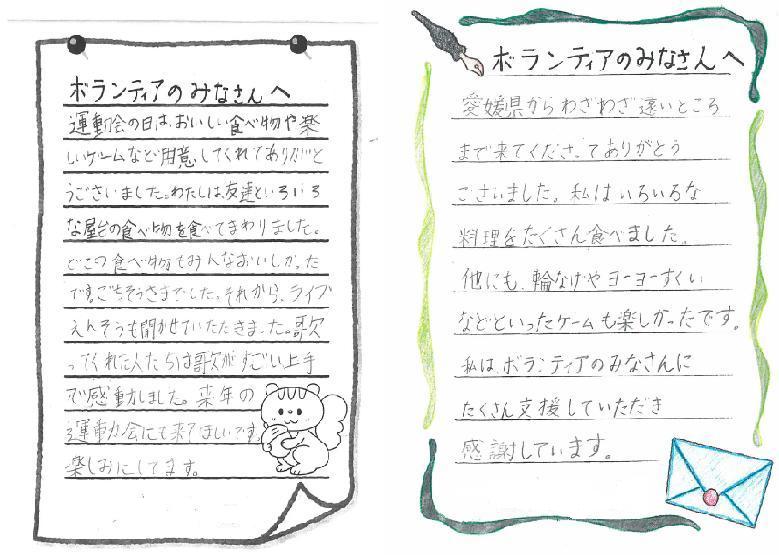 ボランティアのみなさんへ
運動会の日は、おいしい食べ物や楽
しいゲームなど用意してくれてありがと
うございました。わたしは、友達といろいろ
な屋台の食べ物を食べてまわりました。
どこの食べ物もみんなおいしかった
です。ごちそうさまでした。それから、ライブ
えんそうも聞かせていただきました。歌
ってくれた人たちは歌がすごい上手
で感動しました。来年の
運動会にも来てほしいです
楽しみにしてます。
ボランティアのみなさんへ
愛媛県からわざわざ遠いところ
まで来てくださってありがとう
ございました。私はいろいろな
料理をたくさん食べました。
他にも、輪なげやヨーヨーすくい
などといったゲームも楽しかったです。
私は、ボランティアのみなさんに
たくさん支援していただき
感謝しています。